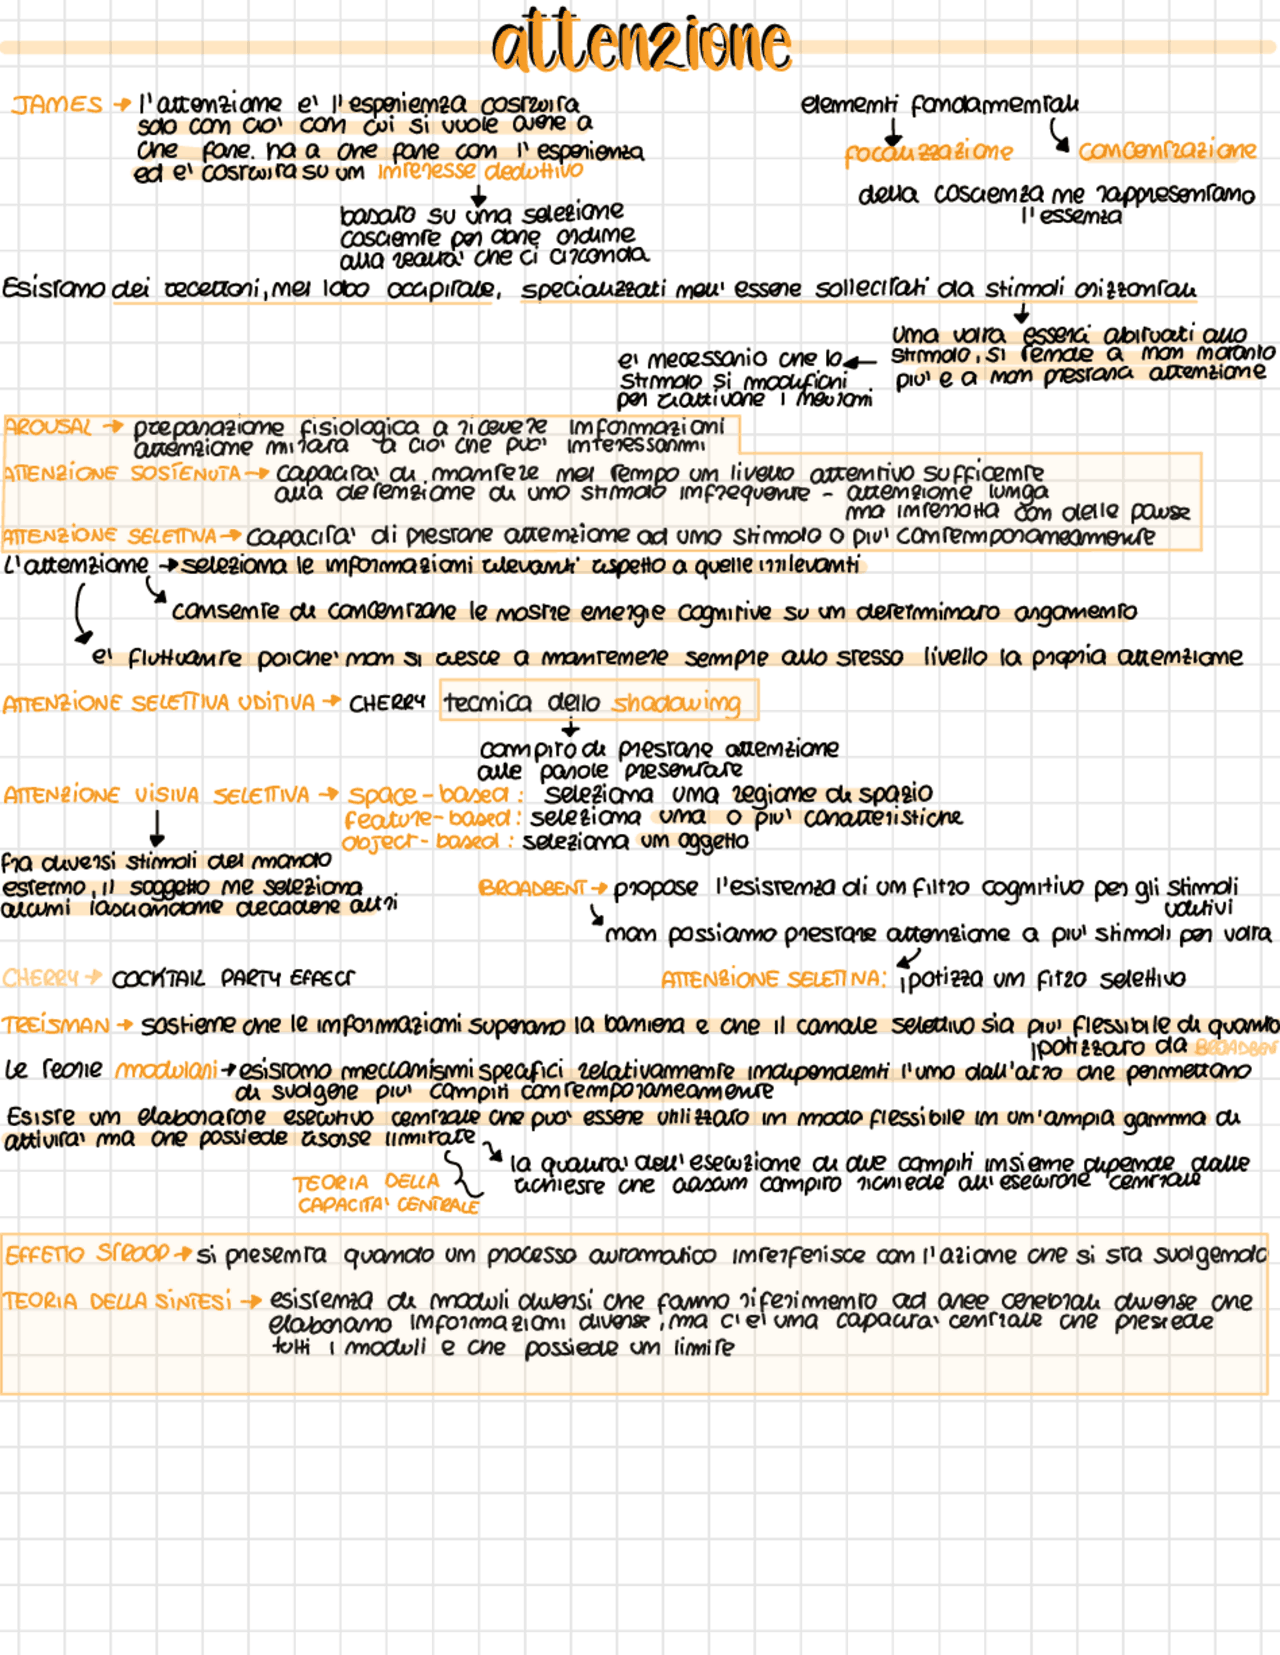 attenzione
JAMES → l'attenzione e' l'esperienza costruita
solo con cio' con cui si vuole avere a
che fare. ha a che fare con l'esperienza
ed e' costruita su un interesse deduttivo
basato su una selezione
cosciente per dare ordine
alla realta' che ci circonda
elementi fondamentali
focalizzazione
concentrazione
della coscienza ne rappresentano
l'essenza
Esistono dei recettori, nel lobo occipitale, specializzati nell' essere sollecitati da stimoli orizzontali
Una volta esserci abituati allo
stimolo, si tende a non notarlo
piu' e a non prestarci attenzione
e' necessario che lo
stimolo si modifichi
per riattivare i neuroni
AROUSAL → preparazione fisiologica a ricevere informazioni
attenzione mirata a cio' che puo' interessarmi
ATTENZIONE SOSTENUTA → capacita' di mantere nel tempo un livello attentivo sufficente
alla detenzione di uno stimolo infrequente - attenzione lunga
ma interrotta con delle pause
ATTENZIONE SELETTIVA → capacita' di prestare attenzione ad uno stimolo o piu' contemporaneamente
L'attenzione → seleziona le informazioni rilevanti rispetto a quelle irrilevanti
consente di concentrare le nostre energie cognitive su un determinato argomento
e' fluttuante poiche' non si riesce a mantenere sempre allo stesso livello la propria attenzione
ATTENZIONE SELETTIVA UDITIVA → CHERRY tecnica dello shadowing
compito di prestare attenzione
alle parole presentate
ATTENZIONE VISIVA SELETTIVA → space-based: seleziona una regione di spazio
feature-based: seleziona una o piu' caratteristiche
object-based: seleziona un oggetto
fra diversi stimoli del mondo
esterno, il soggetto ne seleziona
alcuni lasciandone decadere altri
BROADBENT → propose l'esistenza di un filtro cognitivo per gli stimoli
uditivi
non possiamo prestare attenzione a piu' stimoli per volta
CHERRY → COCKTAIL PARTY EFFECT
ATTENZIONE SELETTIVA: ipotizza un filtro selettivo
TREISMAN → sostiene che le informazioni superano la barriera e che il canale selettivo sia piu' flessibile di quanto
ipotizzato da BROADBENT
Le teorie modulari → esistono meccanismi specifici relativamente indipendenti l'uno dall'altro che permettono
di svolgere piu' compiti contemporaneamente
Esiste un elaboratore esecutivo centrale che puo' essere utilizzato in modo flessibile in un'ampia gamma di
attivita' ma che possiede risorse limitate
la qualita' dell'esecuzione di due compiti insieme dipende dalle
richieste che ciascun compito richiede all'esecutore centrale
TEORIA DELLA
CAPACITA' CENTRALE
EFFETTO STROOP → si presenta quando un processo automatico interferisce con l'azione che si sta svolgendo
TEORIA DELLA SINTESI → esistenza di moduli diversi che fanno riferimento ad aree cerebrali diverse che
elaborano informazioni diverse, ma c'e' una capacita' centrale che presiede
tutti i moduli e che possiede un limite